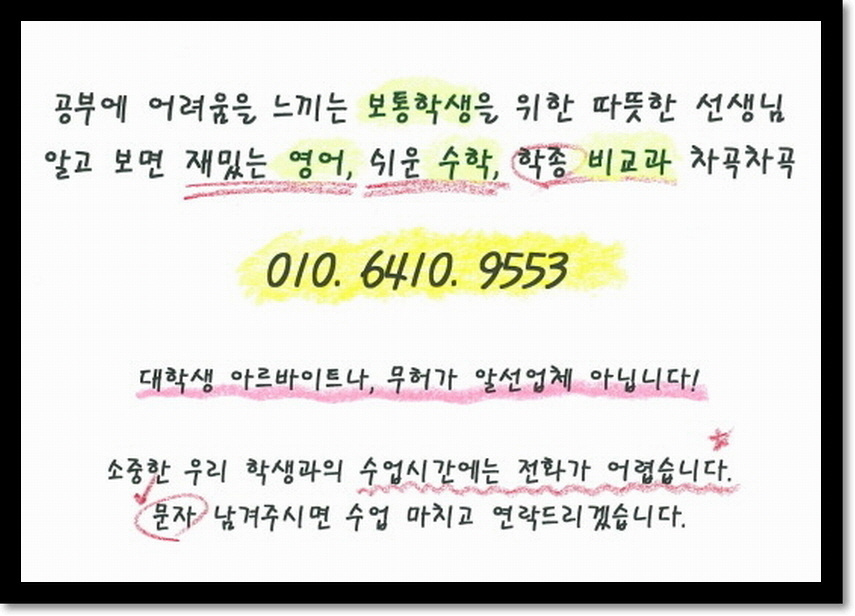 공부에 어려움을 느끼는 보통학생을 위한 따뜻한 선생님
알고 보면 재밌는 영어, 쉬운 수학, 학종 비교과 차곡차곡
010. 6410. 9553
대학생 아르바이트나, 무허가 알선업체 아닙니다!
소중한 우리 학생과의 수업시간에는 전화가 어렵습니다.
문자 남겨주시면 수업 마치고 연락드리겠습니다.